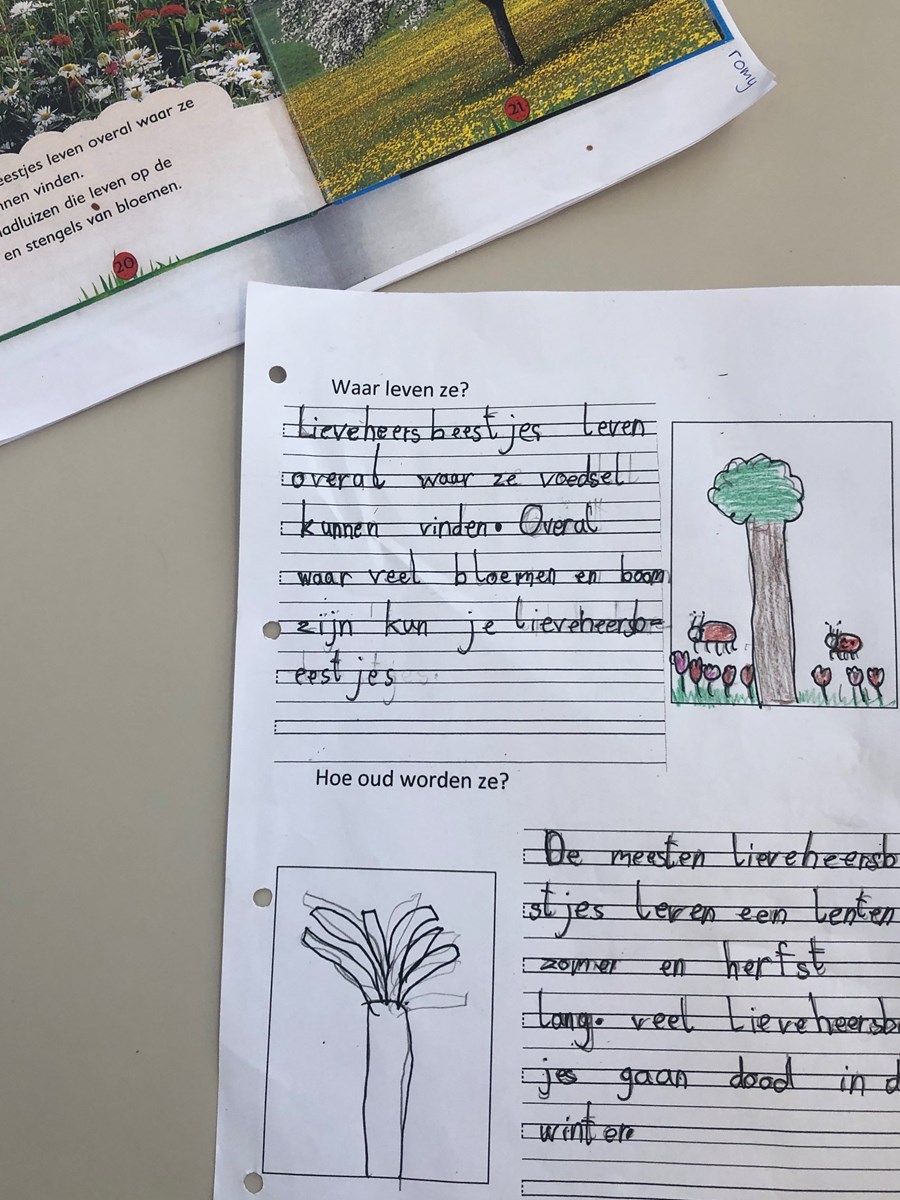 romy
21
eestjes leven overal waar ze
nnen vinden.
adluizen die leven op de
en stengels van bloemen.
20
Waar leven ze?
Lieveheersbeestjes leven
overal waar ze voedsel
kunnen vinden. Overal
waar veel bloemen en boom
zijn kun je lieveheersbe
eestjes
Hoe oud worden ze?
De meesten lieveheersb
stjes leven een lenten
zomer en herfst
lang. veel lieveheersb
jes gaan dood in d
winter